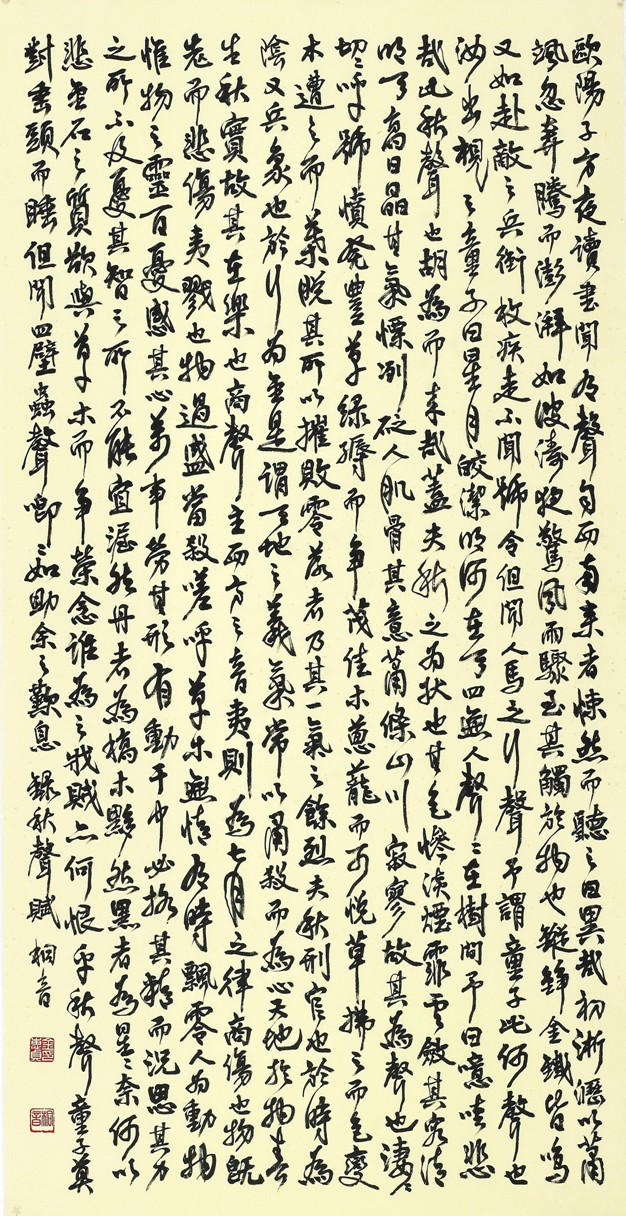 歐陽子方夜讀書聞有聲自西南來者悚然而聽之曰異哉初淅瀝以蕭
颯忽奔騰而澎湃如波濤夜驚風雨驟至其觸於物也鏦錚金鐵皆鳴
又如赴敵之兵銜枚疾走不聞號令但聞人馬之行聲予謂童子此何聲也
汝出視之童子曰星月皎潔明河在天四無人聲々在樹間予曰噫嘻悲
哉此秋聲也胡為而來哉蓋夫秋之為狀也其色慘淡煙霏雲斂其容清
明天高日晶其氣慄冽砭人肌骨其意蕭條山川寂寥故其為聲也淒々
切々呼號憤發豐草綠縟而爭茂佳木蔥蘢而可悅草拂之而色變
木遭之而葉脫其所以摧敗零落者乃其一氣之餘烈夫秋刑官也於時為
陰又兵象也於行為金是謂天地之義氣常以肅殺而為心天地於物春
生秋實故其在樂也商聲主西方之音夷則為七月之律商傷也物既
老而悲傷夷戮也物過盛當殺嗟乎草木無情有時飄零人為動物
惟物之靈百憂感其心萬事勞其形有動于中必搖其精而況思其力
之所不及憂其智之所不能宜渥然丹者為槁木黟然黑者為星々奈何以
悲金石之質欲與草木而爭榮念誰為之戕賊亦何恨乎秋聲童子莫
對垂頭而睡但聞四壁蟲聲唧々如助余之歎息 錄秋聲賦 桐音